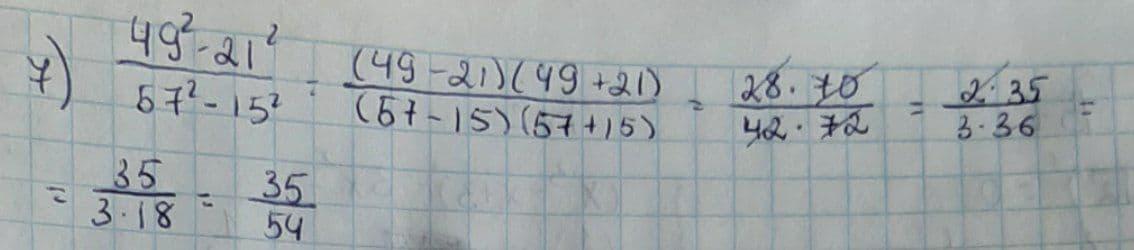 7) (49² - 21²)/(57² - 15²) = ((49 - 21)(49 + 21))/((57 - 15)(57 + 15)) = (28 · 70)/(42 · 72) = (2 · 35)/(3 · 36) =
= 35/(3 · 18) = 35/54